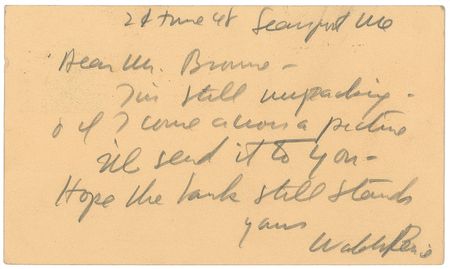 24 June 48 Searsport Me
Dear Mr. Browne -
I'm still unpacking -
If I come across a picture
I'll send it to you -
Hope the bank still stands
yours